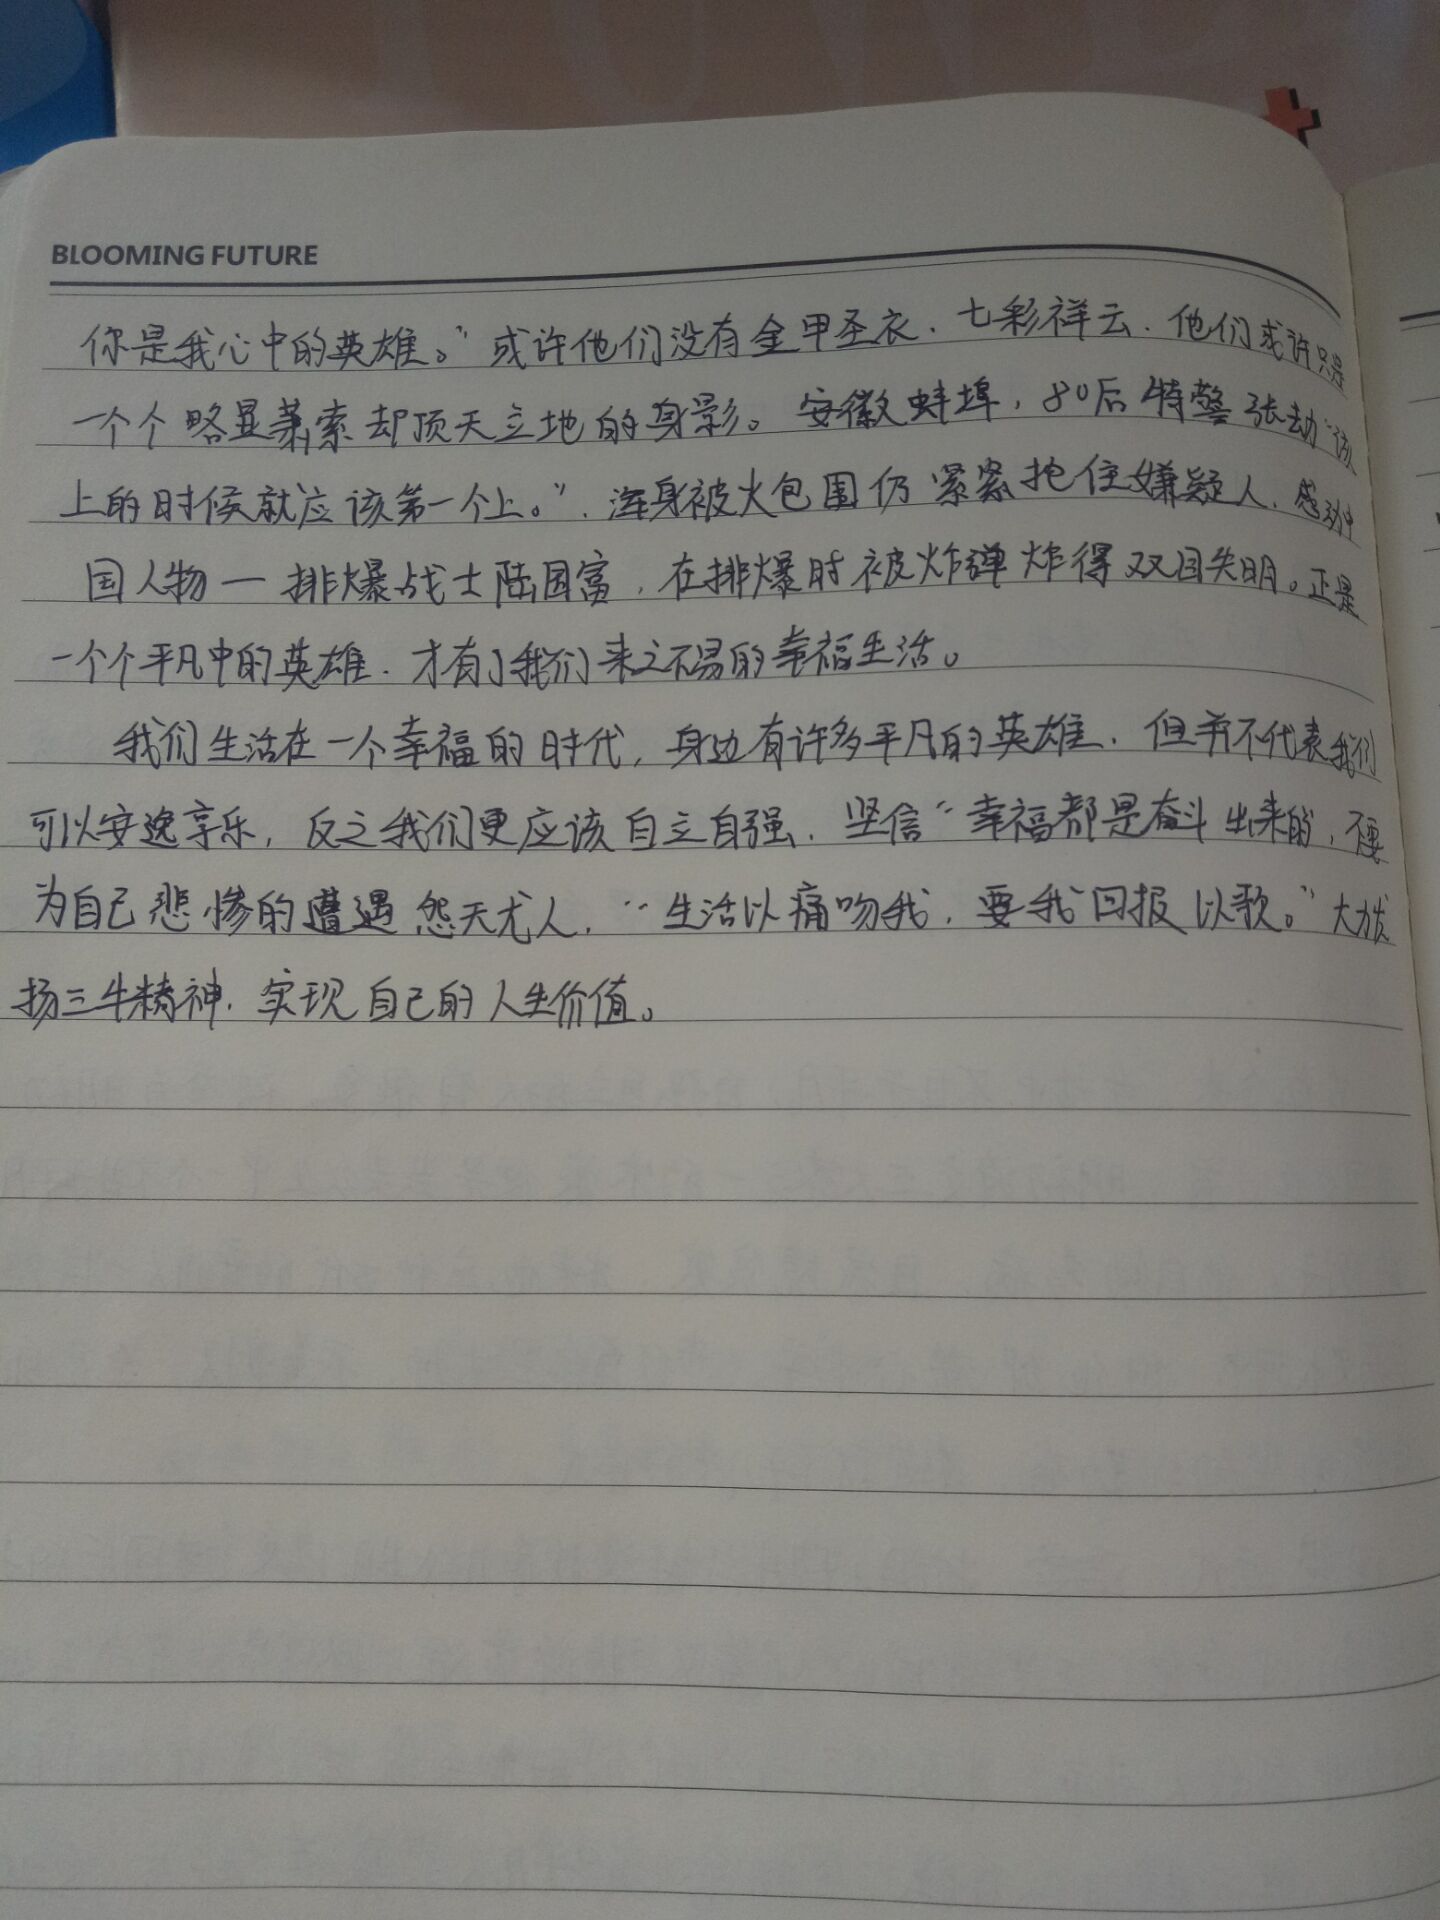 BLOOMING FUTURE
你是我心中的英雄。”或许他们没有金甲圣衣、七彩祥云,他们或许只是
一个个略显萧索却顶天立地的身影。安徽蚌埠,80后特警张劼“该
上的时候就应该第一个上。”,浑身被火包围仍紧紧抱住嫌疑人,感动中
国人物一排爆战士陆国富,在排爆时被炸弹炸得双目失明。正是
一个个平凡中的英雄,才有了我们来之不易的幸福生活。
我们生活在一个幸福的时代,身边有许多平凡的英雄,但并不代表我们
可以安逸享乐,反之我们更应该自立自强,坚信“幸福都是奋斗出来的,不要
为自己悲惨的遭遇怨天尤人,“生活以痛吻我,要我回报以歌。”大力发
扬三牛精神,实现自己的人生价值。